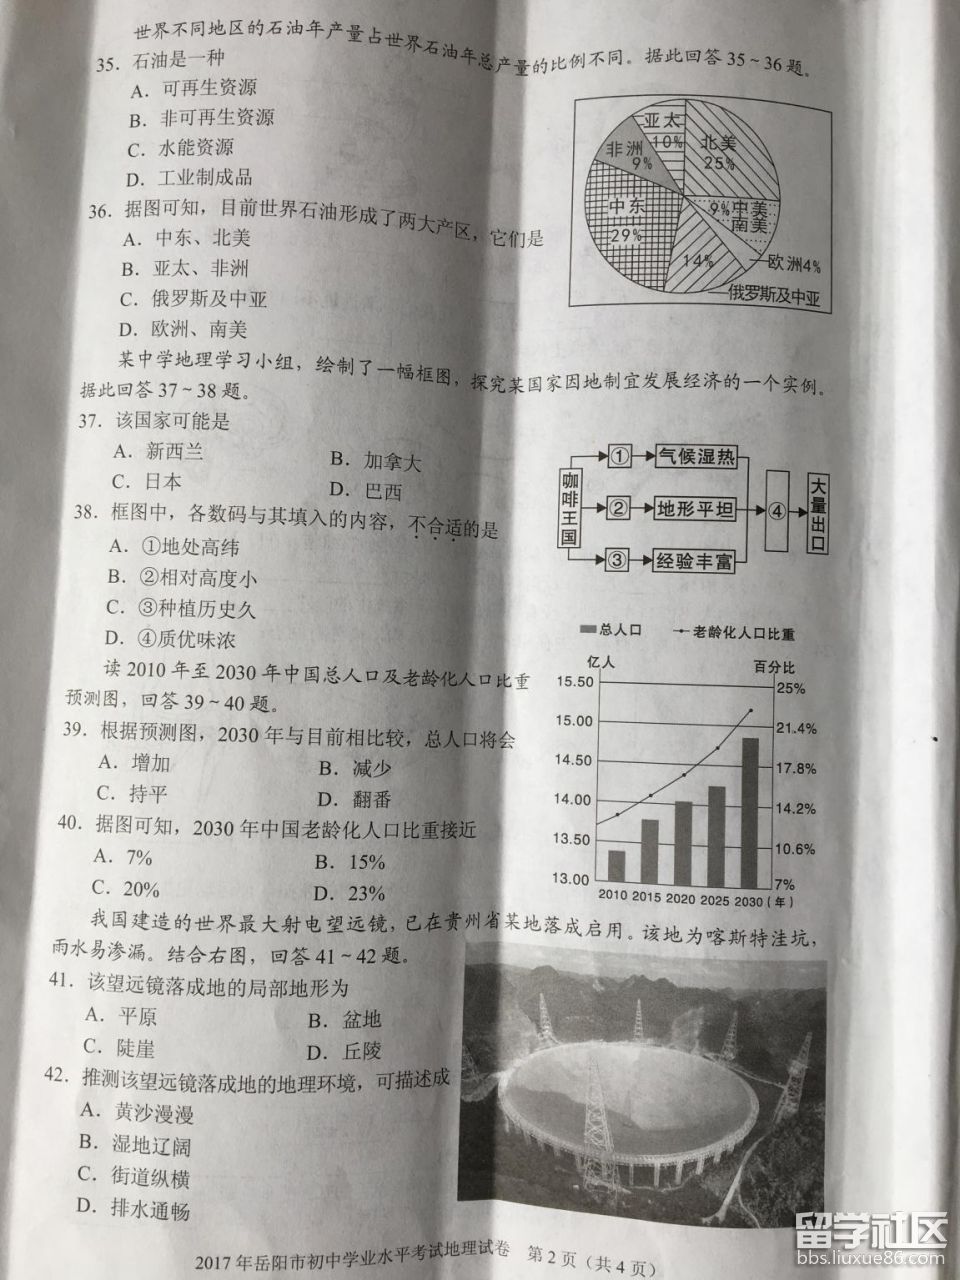 世界不同地区的石油年产量占世界石油年总产量的比例不同。据此回答35~36题。
35. 石油是一种
A. 可再生资源
B. 非可再生资源
C. 水能资源
D. 工业制成品
亚太
10%
北美
25%
非洲
9%
9%中美
南美
中东
29%
14%
欧洲4%
俄罗斯及中亚
36. 据图可知，目前世界石油形成了两大产区，它们是
A. 中东、北美
B. 亚太、非洲
C. 俄罗斯及中亚
D. 欧洲、南美
某中学地理学习小组，绘制了一幅框图，探究某国家因地制宜发展经济的一个实例。
据此回答37~38题。
37. 该国家可能是
A. 新西兰
B. 加拿大
C. 日本
D. 巴西
咖啡王国
①
气候湿热
②
地形平坦
③
经验丰富
④
大量出口
38. 框图中，各数码与其填入的内容，不合适的是
A. ①地处高纬
B. ②相对高度小
C. ③种植历史久
D. ④质优味浓
读2010年至2030年中国总人口及老龄化人口比重
预测图，回答39~40题。
39. 根据预测图，2030年与目前相比较，总人口将会
A. 增加
B. 减少
C. 持平
D. 翻番
40. 据图可知，2030年中国老龄化人口比重接近
A. 7%
B. 15%
C. 20%
D. 23%
总人口
老龄化人口比重
亿人
百分比
15.50
15.00
14.50
14.00
13.50
13.00
25%
21.4%
17.8%
14.2%
10.6%
7%
2010 2015 2020 2025 2030 (年)
我国建造的世界最大射电望远镜，已在贵州省某地落成启用。该地为喀斯特洼坑，
雨水易渗漏。结合右图，回答41~42题。
41. 该望远镜落成地的局部地形为
A. 平原
B. 盆地
C. 陡崖
D. 丘陵
42. 推测该望远镜落成地的地理环境，可描述成
A. 黄沙漫漫
B. 湿地辽阔
C. 街道纵横
D. 排水通畅
2017年岳阳市初中学业水平考试地理试卷 第2页（共4页）
留学社区
bbs.liuxue86.com